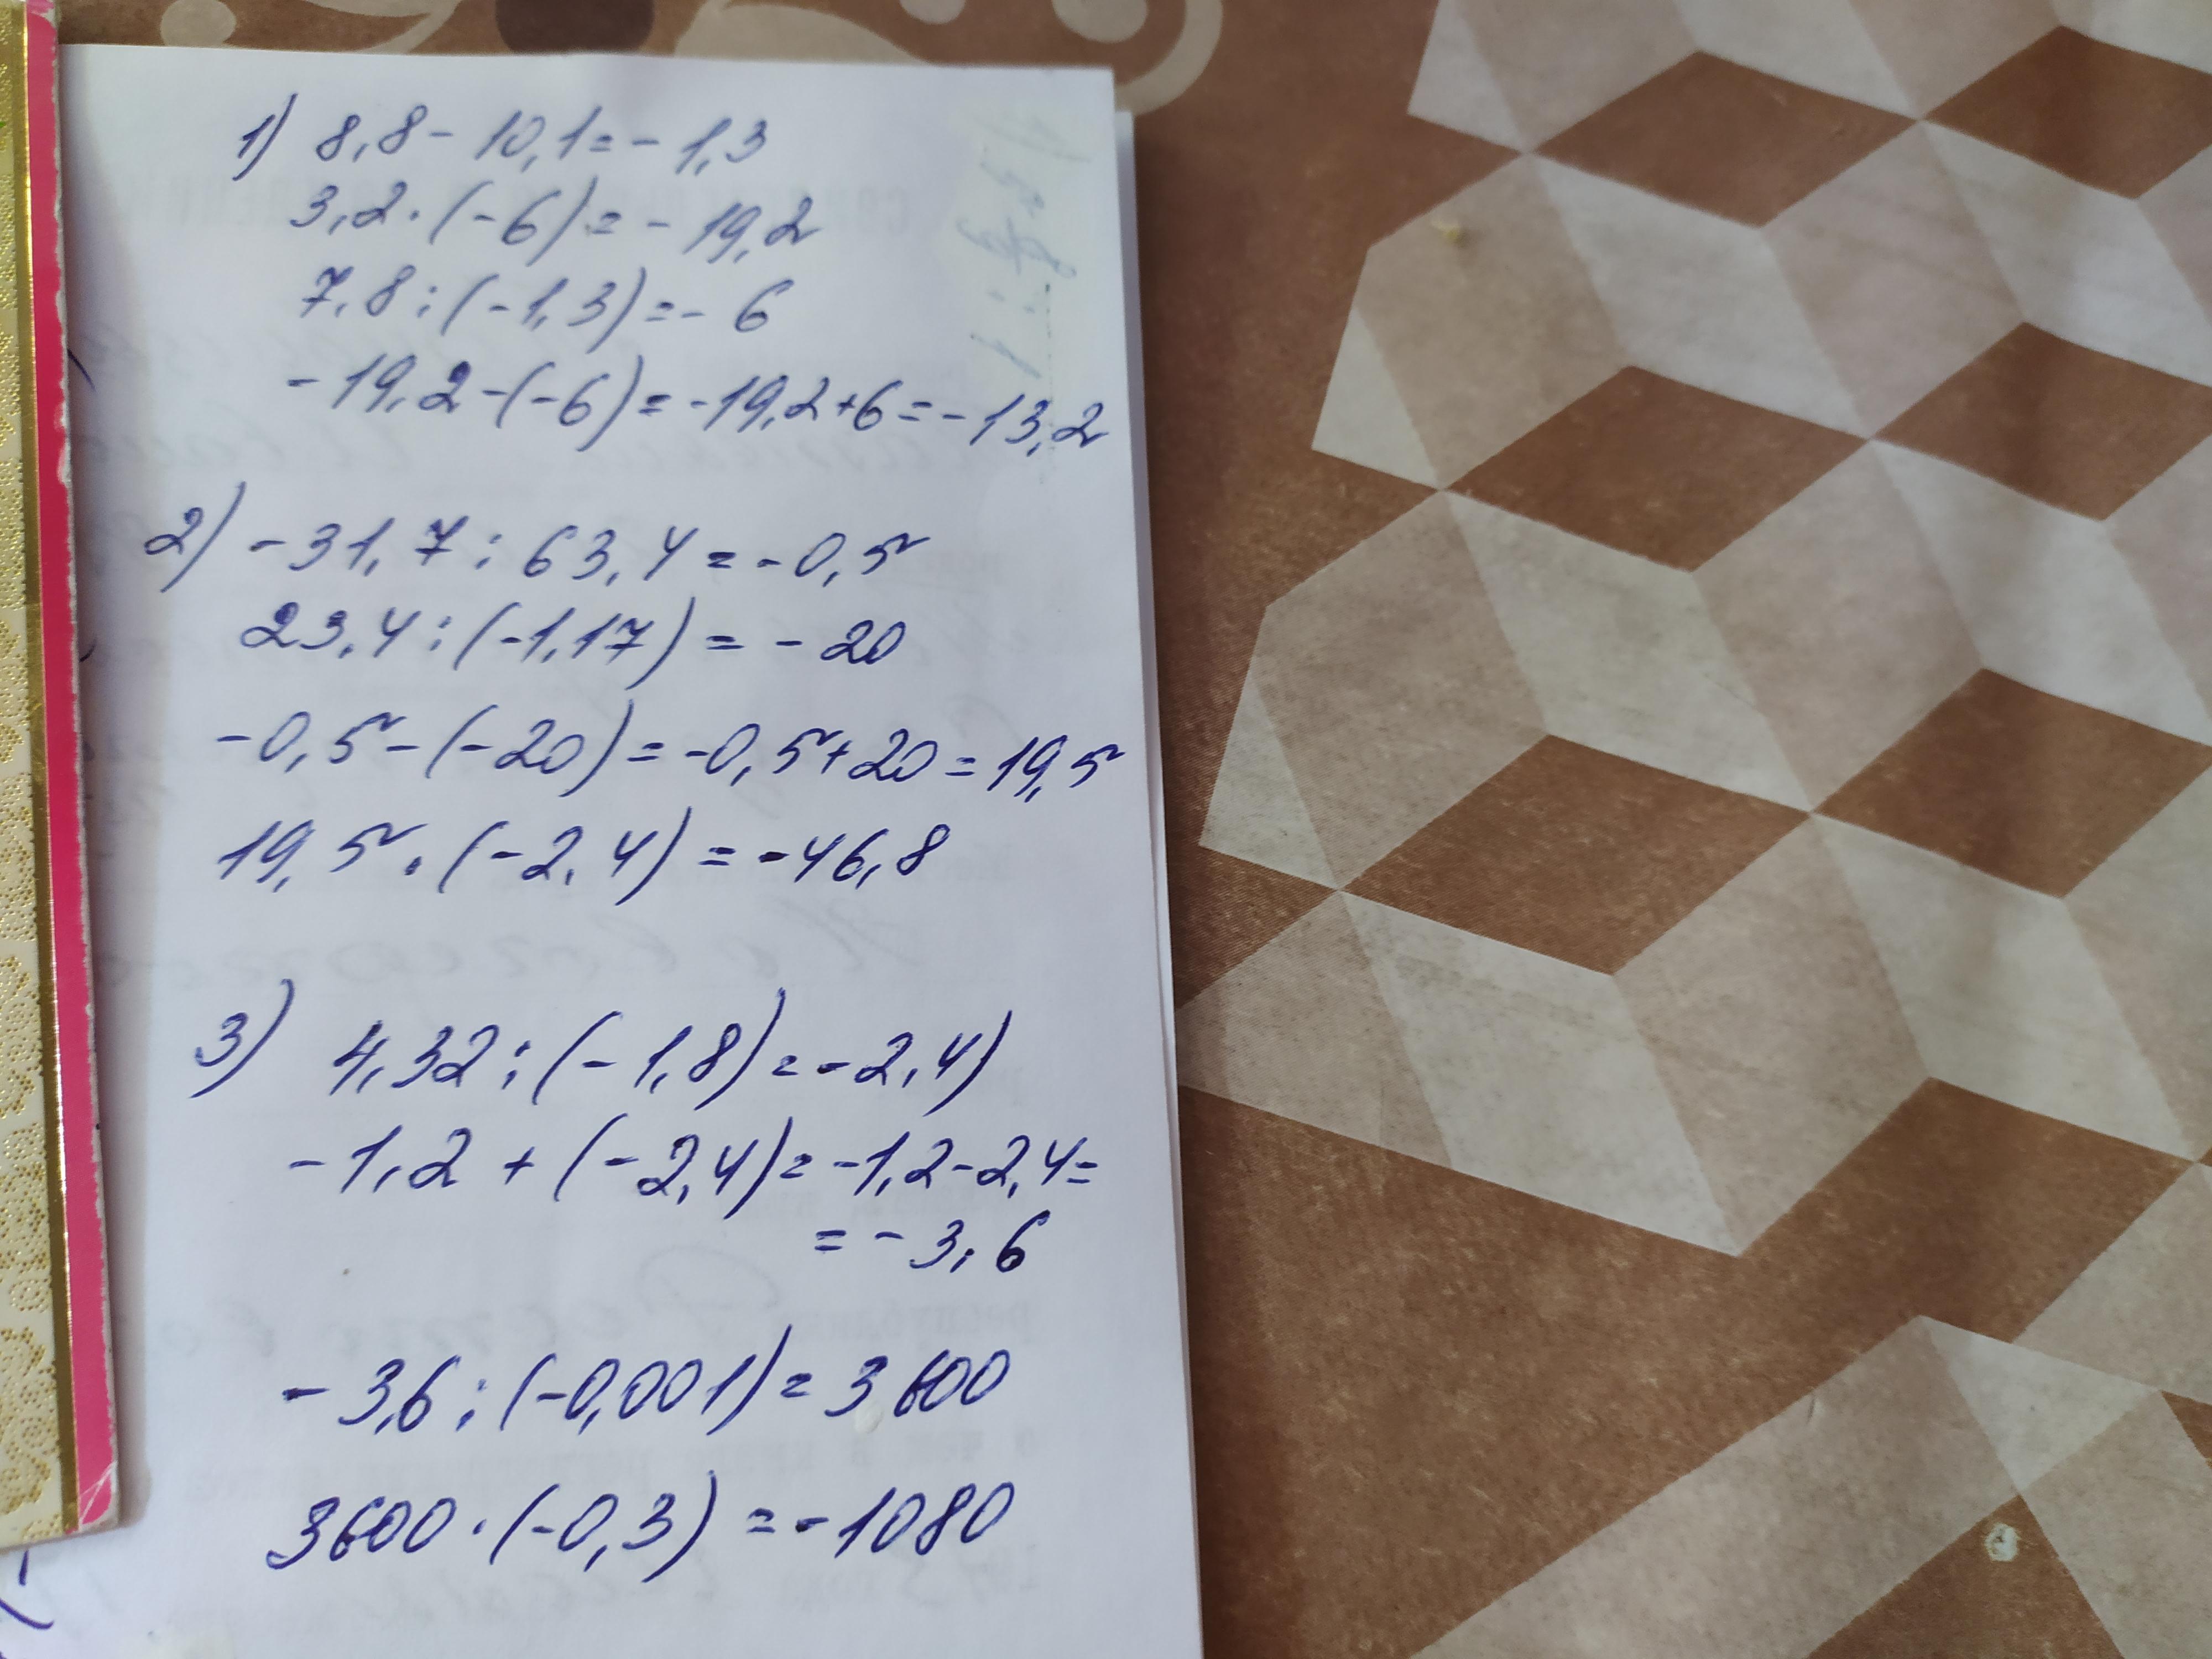 1) 8,8 - 10,1 = - 1,3
3,2 · (-6) = - 19,2
7,8 : (-1,3) = - 6
- 19,2 - (-6) = -19,2 + 6 = - 13,2
2) - 31,7 : 63,4 = - 0,5
23,4 : (-1,17) = - 20
- 0,5 - (-20) = -0,5 + 20 = 19,5
19,5 · (-2,4) = -46,8
3) 4,32 : (-1,8) = -2,4)
- 1,2 + (-2,4) = -1,2 - 2,4 =
= - 3,6
- 3,6 : (-0,001) = 3600
3600 · (-0,3) = -1080